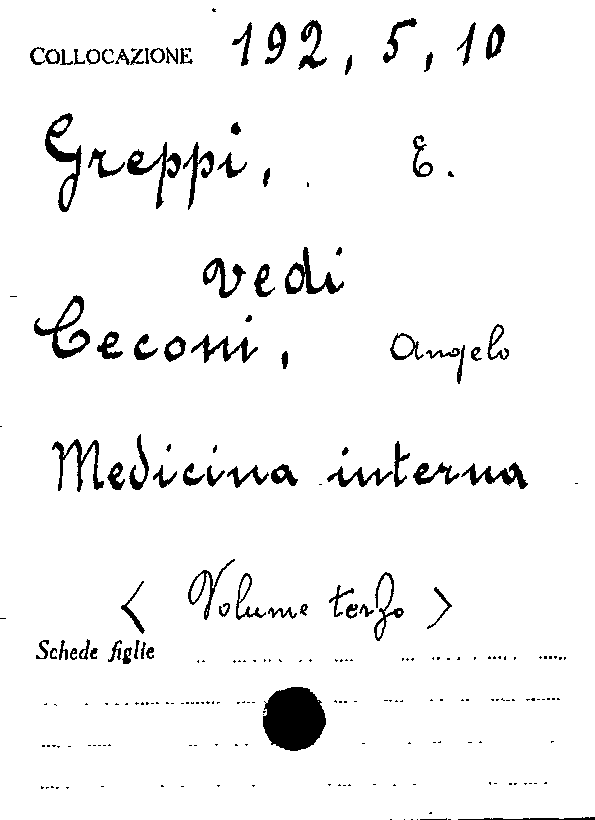 COLLOCAZIONE 192, 5, 10
Greppi, E.
vedi
Ceconi, Angelo
Medicina interna
< Volume terzo >
Schede figlie